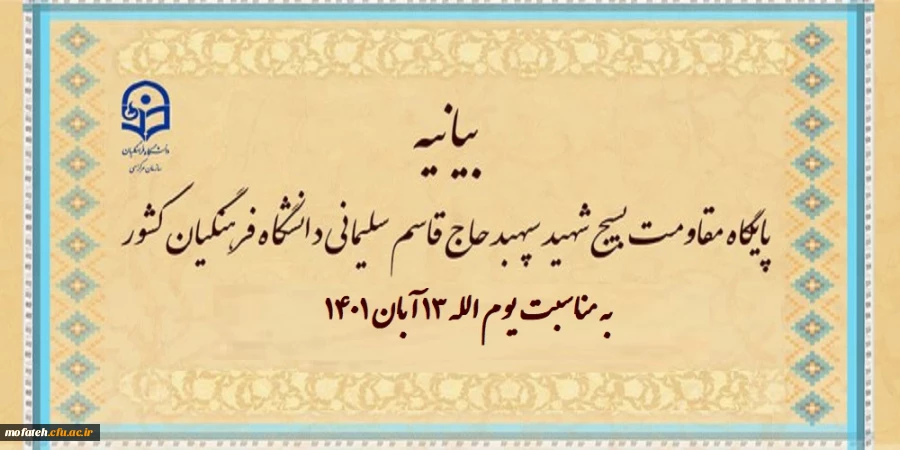 بیانیه
دانشگاه فرهنگیان
سازمان مرکزی
پایگاه مقاومت بسیج شهید سپهبد حاج قاسم سلیمانی دانشگاه فرهنگیان کشور
به مناسبت یوم الله ۱۳ آبان ۱۴۰۱
mofateh.cfu.ac.ir